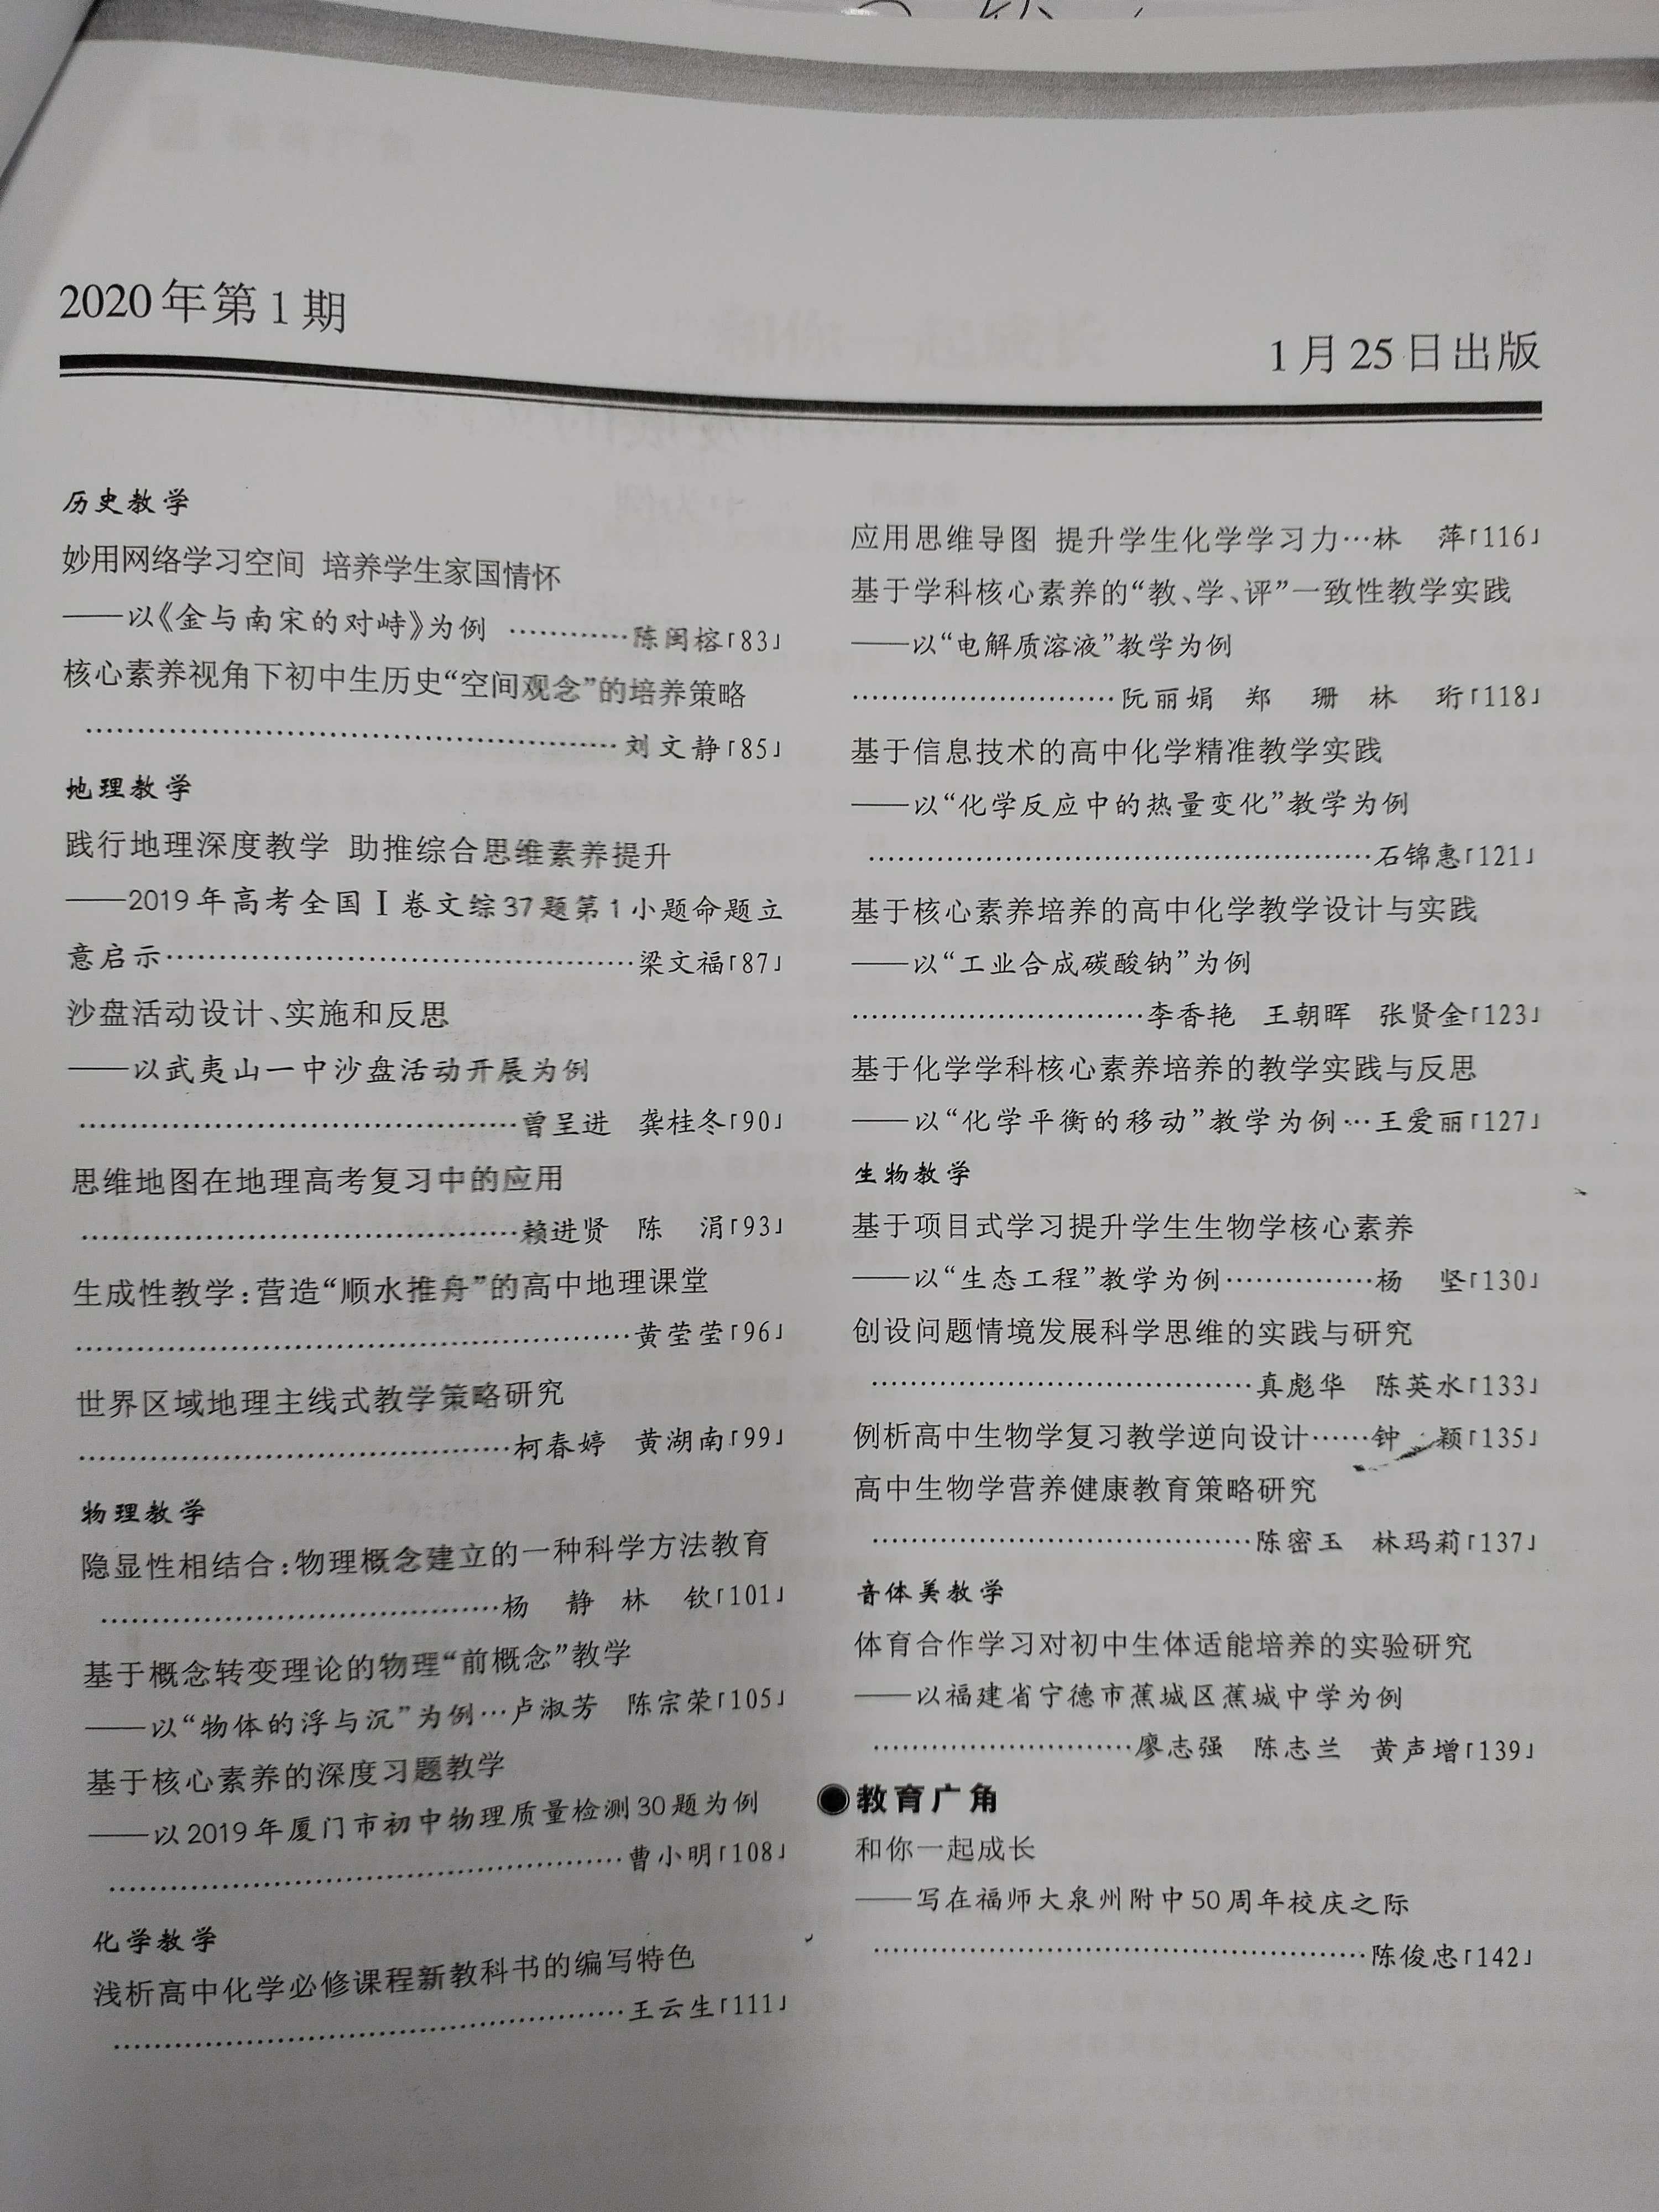 2020年第1期
1月25日出版
历史教学
妙用网络学习空间 培养学生家国情怀
——以《金与南宋的对峙》为例 …………陈闽榕「83」
核心素养视角下初中生历史“空间观念”的培养策略
……………………………………………刘文静「85」
地理教学
践行地理深度教学 助推综合思维素养提升
——2019年高考全国Ⅰ卷文综37题第1小题命题立
意启示………………………………………梁文福「87」
沙盘活动设计、实施和反思
——以武夷山一中沙盘活动开展为例
……………………………………曾呈进 龚桂冬「90」
思维地图在地理高考复习中的应用
……………………………………赖进贤 陈 涓「93」
生成性教学:营造“顺水推舟”的高中地理课堂
………………………………………………黄莹莹「96」
世界区域地理主线式教学策略研究
……………………………………柯春婷 黄湖南「99」
物理教学
隐显性相结合:物理概念建立的一种科学方法教育
…………………………………杨 静 林 钦「101」
基于概念转变理论的物理“前概念”教学
——以“物体的浮与沉”为例…卢淑芳 陈宗荣「105」
基于核心素养的深度习题教学
——以2019年厦门市初中物理质量检测30题为例
……………………………………………曹小明「108」
化学教学
浅析高中化学必修课程新教科书的编写特色
……………………………………………王云生「111」
应用思维导图 提升学生化学学习力…林 萍「116」
基于学科核心素养的“教、学、评”一致性教学实践
——以“电解质溶液”教学为例
………………………阮丽娟 郑 珊 林 珩「118」
基于信息技术的高中化学精准教学实践
——以“化学反应中的热量变化”教学为例
……………………………………………石锦惠「121」
基于核心素养培养的高中化学教学设计与实践
——以“工业合成碳酸钠”为例
…………………………李香艳 王朝晖 张贤金「123」
基于化学学科核心素养培养的教学实践与反思
——以“化学平衡的移动”教学为例…王爱丽「127」
生物教学
基于项目式学习提升学生生物学核心素养
——以“生态工程”教学为例……………杨 坚「130」
创设问题情境发展科学思维的实践与研究
…………………………………真彪华 陈英水「133」
例析高中生物学复习教学逆向设计……钟 颖「135」
高中生物学营养健康教育策略研究
…………………………………陈密玉 林玛莉「137」
音体美教学
体育合作学习对初中生体适能培养的实验研究
——以福建省宁德市蕉城区蕉城中学为例
………………………廖志强 陈志兰 黄声增「139」
●教育广角
和你一起成长
——写在福师大泉州附中50周年校庆之际
……………………………………………陈俊忠「142」